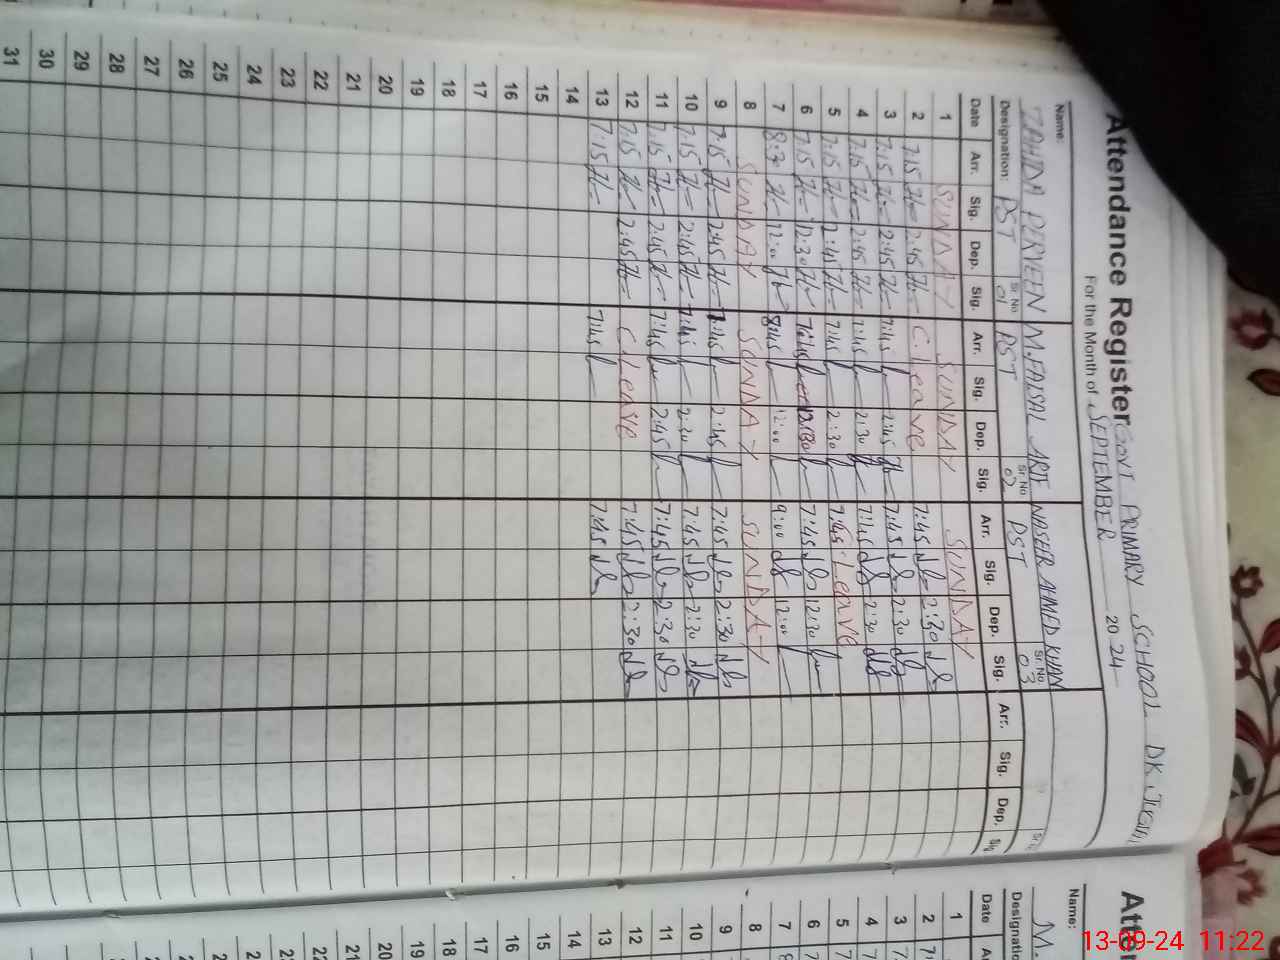 Attendance Register GOVT PRIMARY SCHOOL DK
For the Month of SEPTEMBER 2024
Name: ZAHIDA PERVEEN M.FAISAL NASEER AHMED KHAN
Designation: PST Sr.No 01 PST Sr.No 02 PST Sr.No 03
Date Arr. Sig. Dep. Sig. Arr. Sig. Dep. Sig. Arr. Sig. Dep. Sig. Arr. Sig. Dep. Sig
1 SUNDAY SUNDAY SUNDAY
2 7:15 2:45 C.Leave 7:45 2:30
3 7:15 2:45 7:45 2:45 7:45 2:30
4 7:15 2:45 7:45 2:30 7:45 2:30
5 7:15 2:45 7:45 2:30 7:45 C.Leave
6 7:15 12:30 7:45 12:30 7:45 12:30
7 8:30 12:00 8:45 12:00 9:00 12:00
8 SUNDAY SUNDAY SUNDAY
9 7:15 2:45 7:45 2:45 7:45 2:30
10 7:15 2:45 7:45 2:30 7:45 2:30
11 7:15 2:45 7:45 2:45 7:45 2:30
12 7:15 2:45 C.Leave 7:45 2:30
13 7:15 7:45 7:45
14
15
16
17
18
19
20
21
22
23
24
25
26
27
28
29
30
31
Atte
Name: M.
Designatio
Date A
1
2 7
3 7
4 7
5 7
6 7
7 8
8
9
10
11
12
13
14
15
16
17
18
19
20
21
13-09-24 11:22